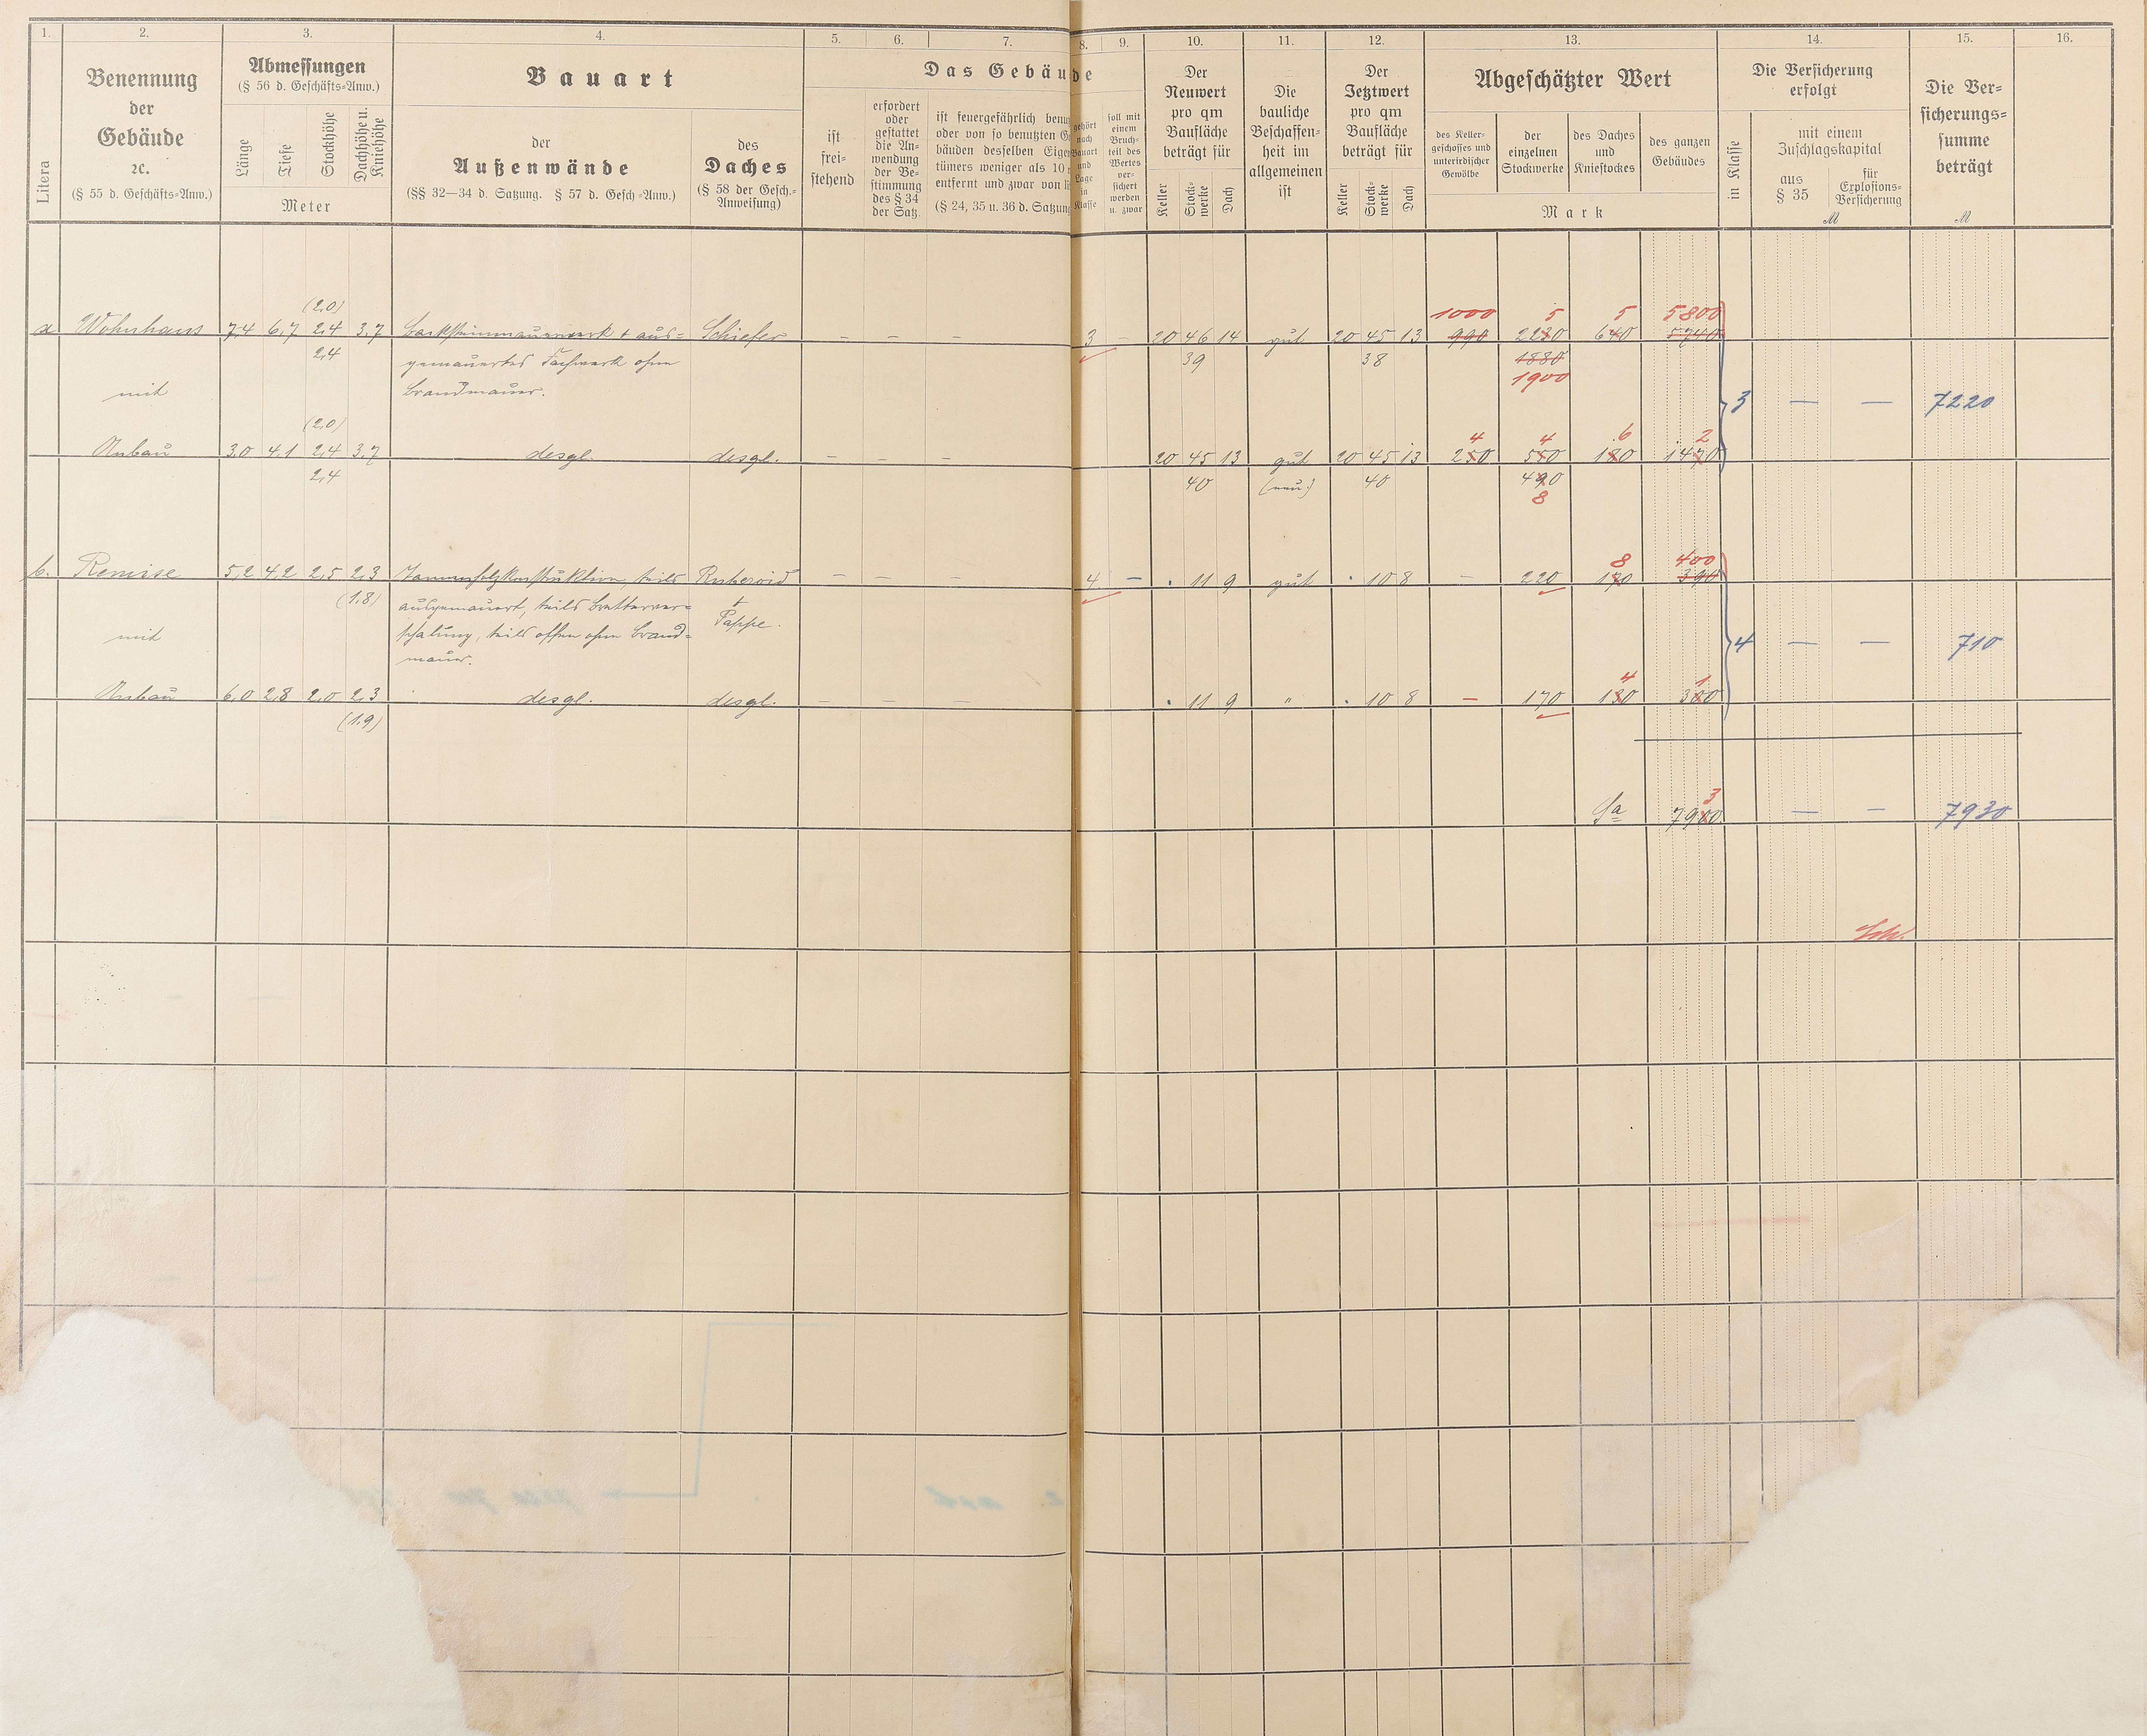 1. 2. 3. 4. 5. 6. 7. 8. 9. 10. 11. 12. 13. 14. 15. 16.
Litera
Benennung
der
Gebäude
ꝛc.
(§ 55 d. Geschäfts-Anw.)
Abmessungen
(§ 56 d. Geschäfts-Anw.)
Länge
Tiefe
Stockhöhe
Dachhöhe u.
Kniehöhe
Meter
Bauart
der
Außenwände
(§§ 32—34 d. Satzung. § 57 d. Gesch.-Anw.)
des
Daches
(§ 58 der Gesch.-
Anweisung)
Das Gebäude
ist
frei-
stehend
erfordert
oder
gestattet
die An-
wendung
der Be-
stimmung
des § 34
der Satz.
ist feuergefährlich benu
oder von so benutzten G
bäuden desselben Eige
tümers weniger als 10
entfernt und zwar von
(§ 24, 35 u. 36 d. Satzung
gehört
nach
Bauart
und
Lage
in
Klasse
soll mit
einem
Bruch-
teil des
Wertes
ver-
sichert
werden
u. zwar
Der
Neuwert
pro qm
Baufläche
beträgt für
Keller
Stock-
werke
Dach
Die
bauliche
Beschaffen-
heit im
allgemeinen
ist
Der
Jetztwert
pro qm
Baufläche
beträgt für
Keller
Stock-
werke
Dach
Abgeschätzter Wert
des Keller-
geschosses und
unterirdischer
Gewölbe
der
einzelnen
Stockwerke
des Daches
und
Kniestockes
des ganzen
Gebäudes
Mark
Die Versicherung
erfolgt
in Klasse
mit einem
Zuschlagskapital
aus
§ 35
für
Explosions-
Versicherung
ℳ
Die Ver-
sicherungs-
summe
beträgt
ℳ
(2,0) 1000 5 5 5800
a Wohnhaus 7,4 6,7 2,4 3,7 Backsteinmauerwerk + aus- Schiefer — — — 3 — 20 46 14 gut 20 45 13 990 2230 640 5740
2,4 gemauertes Fachwerk ohne 39 38 1880
mit Brandmauer. 1900
3 — — 7220
(2,0) 4 4 6 2
Anbau 3,0 4,1 2,4 3,7 desgl. desgl. — — — 20 45 13 gut 20 45 13 250 550 180 1470
2,4 40 (neu.) 40 490
8
8 400
b. Remise 5,2 4,2 2,5 2,3 Tannenholzkonstruktion, teils Ruberoid — — — 4 — . 11 9 gut . 10 8 — 220 170 390
(1,8) ausgemauert, teils Bretterver- +
mit schalung, teils offen ohne Brand- Pappe.
mauer.
4 — — 710
4 1
Anbau 6,0 2,8 2,0 2,3 desgl. desgl. — — — . 11 9 " . 10 8 — 170 130 300
(1,9)
3
Sa 7900 — — 7930